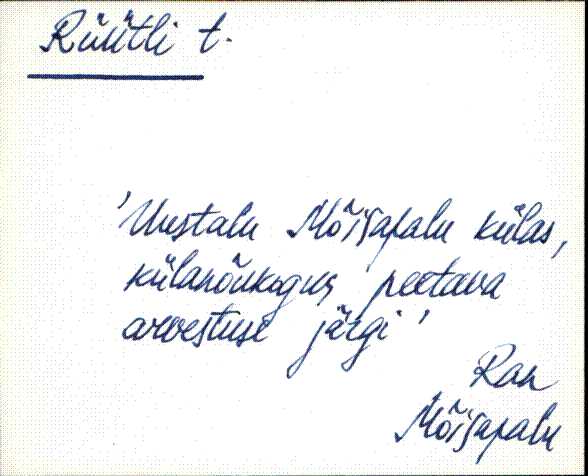 Rüütli t.
'Uustalu Mõisapalu külas,
külanõukogus peetava
arvestuse järgi'
Ran
Mõisapalu